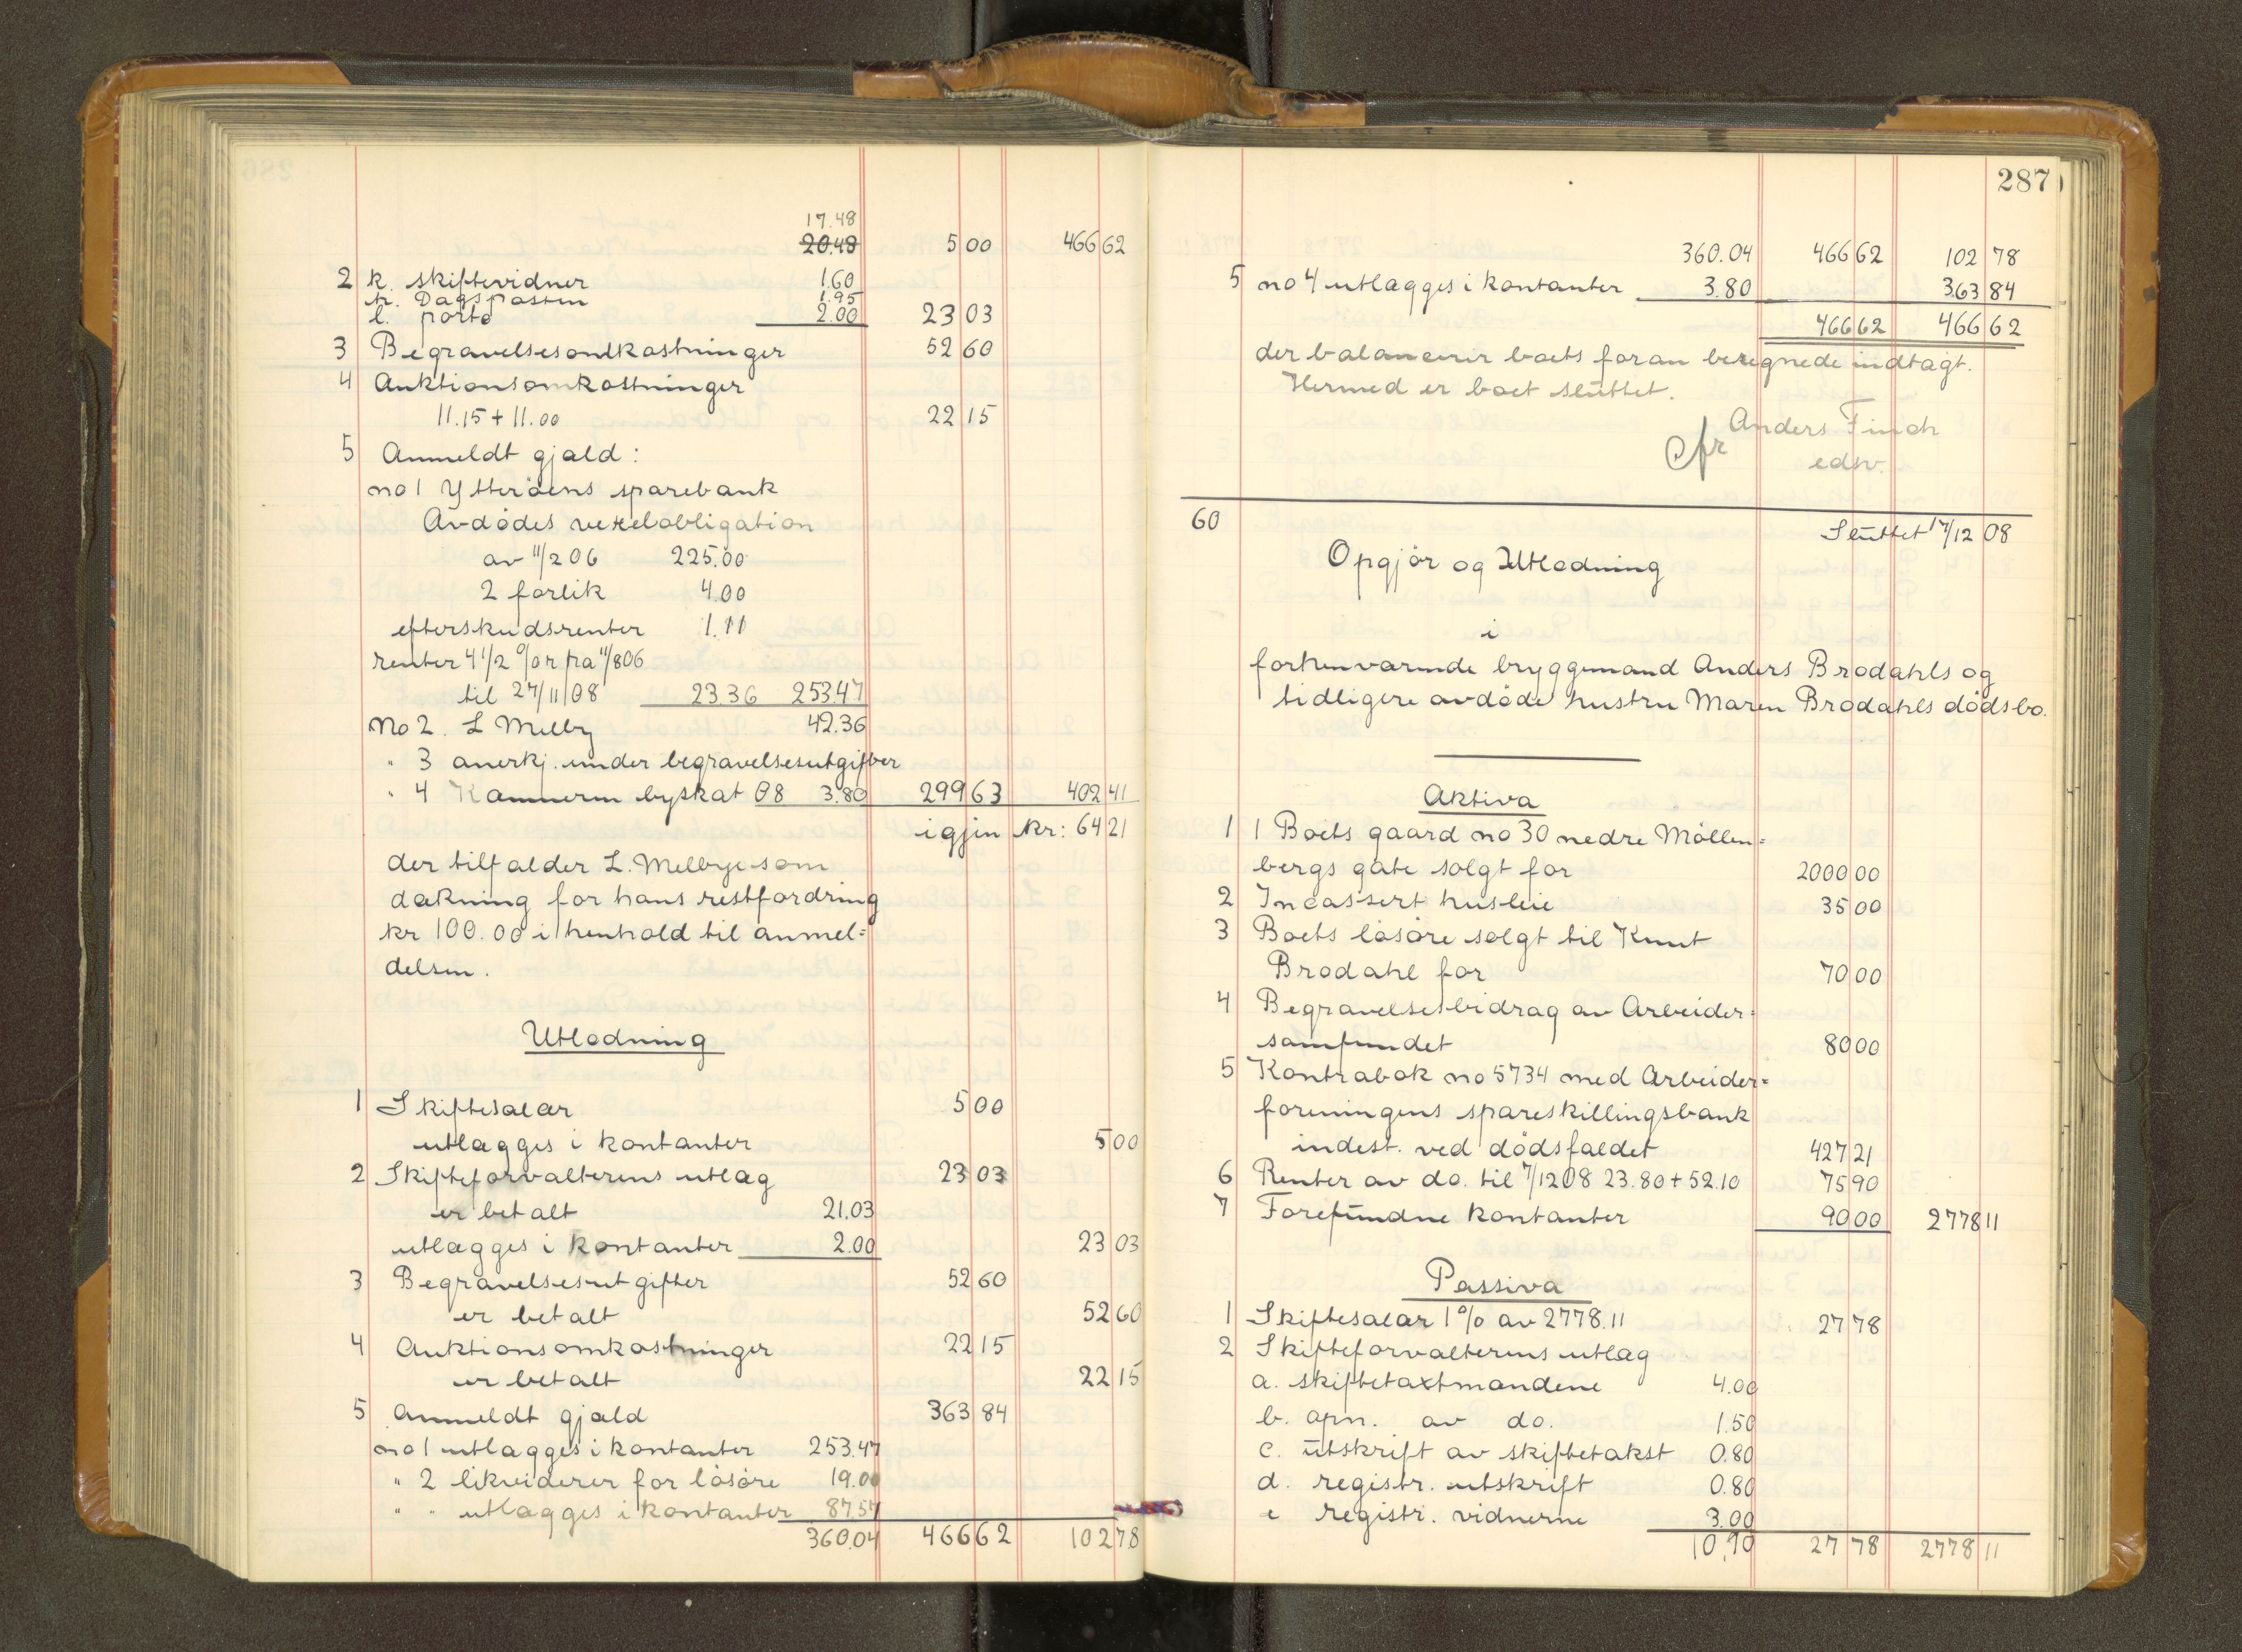 17.48
20.48 5 00 466 62
2 k. skiftevidner 1.60
h. Dagsposten 1.95
l. porto 2.00 23 03
3 Begravelsesomkostninger 52 60
4 Auktionsomkostninger
11.15 + 11.00 22 15
5 Anmeldt gjæld:
no 1 Ytterøens sparebank
Avdødes vexelobligation
av 11/2 06 225.00
2 forlik 4.00
efterskudsrenter 1.11
renter 4 1/2 % fra 11/8 06
til 27/11 08 23.36 253.47
No 2. L Melby 42.36
" 3 anerkj. under begravelsesutgifter
" 4 Kæmneren byskat 08 3.80 299 63 402 41
igjen kr: 64 21
der tilfalder L. Melbye som
dækning for hans restfordring
kr 100.00 i henhold til anmel=
delsen.
Utlodning
1 Skiftesalær 5 00
utlægges i kontanter 5 00
2 Skifteforvalterens utlæg 23 03
er betalt 21.03
utlægges i kontanter 2.00 23 03
3 Begravelsesutgifter 52 60
er betalt 52 60
4 Auktionsomkostninger 22 15
er betalt 22 15
5 Anmeldt gjæld 363 84
no 1 utlægges i kontanter 253.47
" 2 likviderer for løsøre 19.00
" " utlægges i kontanter 87.57
360.04 466 62 102 78
287
360.04 466 62 102 78
5 no 4 utlægges i kontanter 3.80 363 84
466 62 466 62
der balancerer boets foran beregnede indtægt.
Hermed er boet sluttet.
Anders Finch
cfr edsv.
60 Sluttet 17/12 08
Opgjör og Utlodning
i
forhenværende bryggemand Anders Brodahls og
tidligere avdøde hustru Maren Brodahls dödsbo.
Aktiva
1 1 Boets gaard no 30 nedre Möllen=
bergs gate solgt for 2000 00
2 Incassert husleie 35 00
3 Boets løsöre solgt til Knut
Brodahl for 70 00
4 Begravelsesbidrag av Arbeider=
samfundet 80 00
5 Kontrabok no 5734 med Arbeider=
foreningens spareskillingsbank
indest. ved dödsfaldet 427 21
6 Renter av do. til 7/12 08 23.80 + 52.10 75 90
7 Forefundne kontanter 90 00 2778 11
Passiva
1 Skiftesalær 1 % av 2778.11 27 78
2 Skifteforvalterens utlæg
a. skiftetaxtmændene 4.00
b. opn. av do. 1.50
c. utskrift av skiftetakst 0.80
d. registr. utskrift 0.80
e registr. vidnerne 3.00
10.90 27 78 2778 11